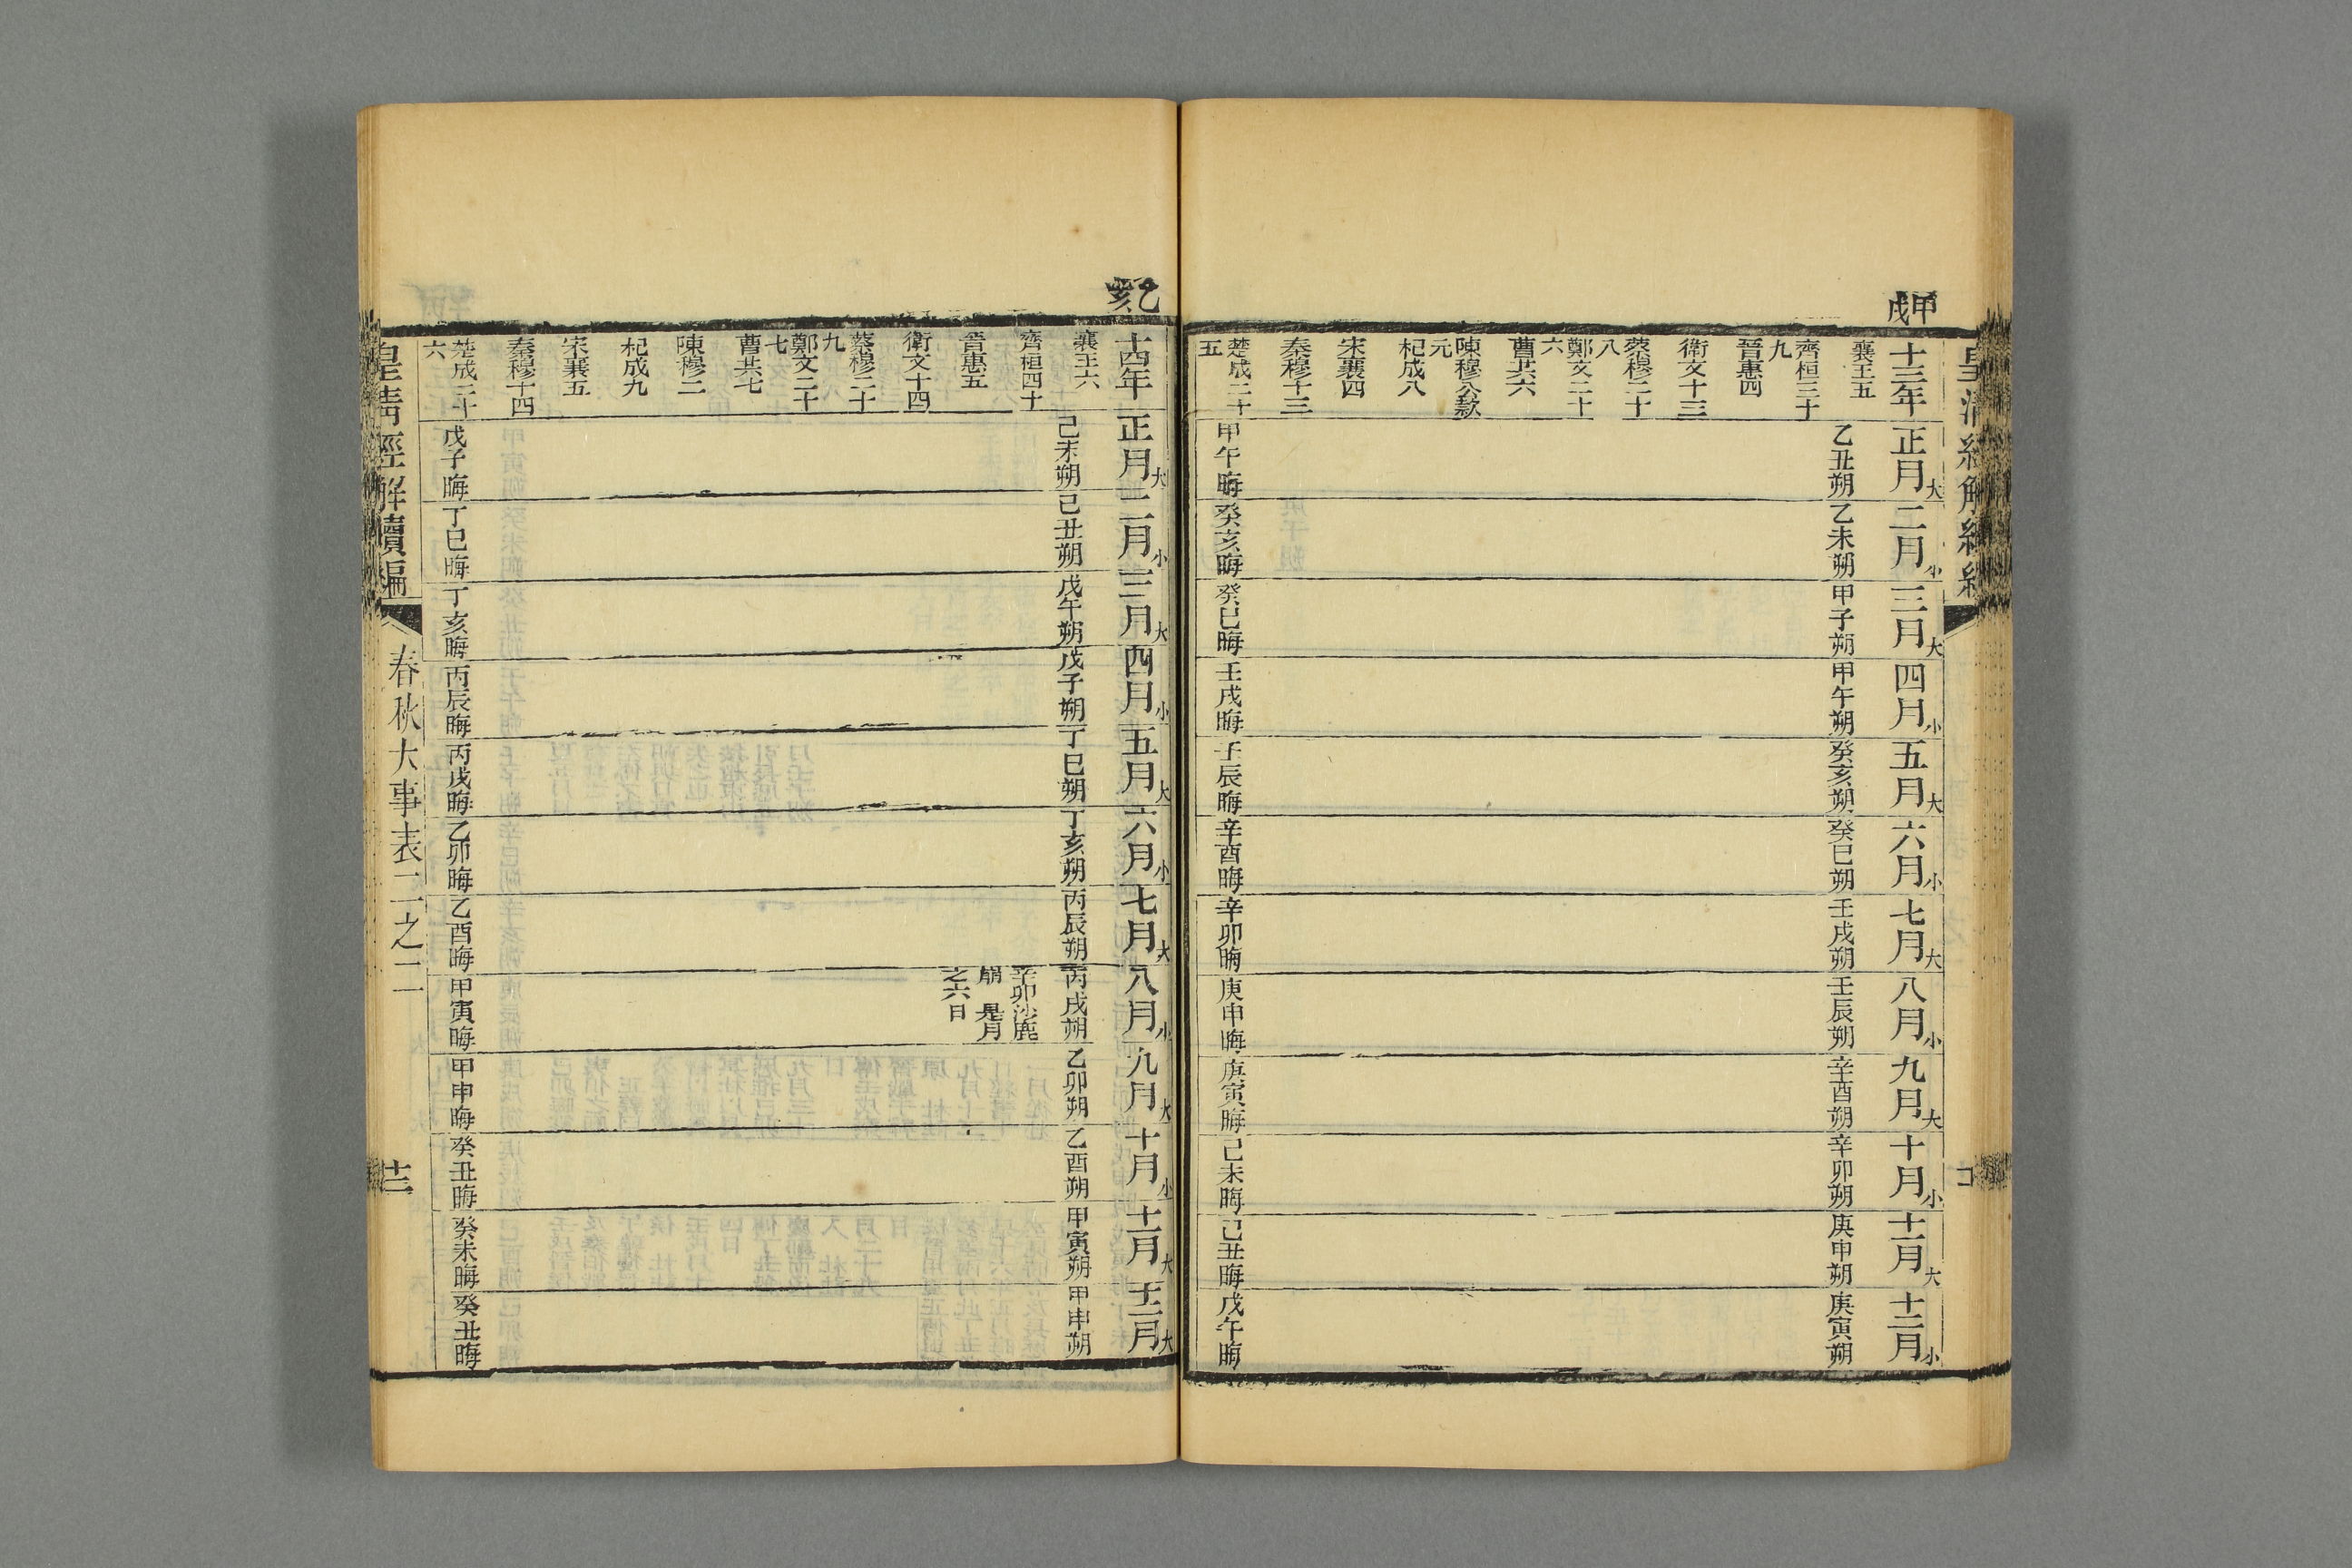 甲戌
十三年
襄王五
齊桓三十
九
晉惠四
衛文十三
蔡穆二十
八
鄭文二十
六
曹共六
陳穆公款
元
杞成八
宋襄四
秦穆十三
楚成二十
五
正月大
乙丑朔
甲午晦
二月小
乙未朔
癸亥晦
三月大
甲子朔
癸巳晦
四月小
甲午朔
壬戌晦
五月大
癸亥朔
壬辰晦
六月小
癸巳朔
辛酉晦
七月大
壬戌朔
辛卯晦
八月小
壬辰朔
庚申晦
九月大
辛酉朔
庚寅晦
十月小
辛卯朔
己未晦
十一月大
庚申朔
己丑晦
十二月小
庚寅朔
戊午晦
乙亥
十四年
襄王六
齊桓四十
晉惠五
衛文十四
蔡穆二十
九
鄭文二十
七
曹共七
陳穆二
杞成九
宋襄五
秦穆十四
楚成二十
六
正月大
己未朔
戊子晦
二月小
己丑朔
丁巳晦
三月大
戊午朔
丁亥晦
四月小
戊子朔
丙辰晦
五月大
丁巳朔
丙戌晦
六月小
丁亥朔
乙卯晦
七月大
丙辰朔
乙酉晦
八月小
丙戌朔
辛卯沙鹿
崩 是月
之六日
甲寅晦
九月大
乙卯朔
甲申晦
十月小
乙酉朔
癸丑晦
十一月大
甲寅朔
癸未晦
十二月大
甲申朔
癸丑晦
皇清經解續編
春秋大事表二之二
十三